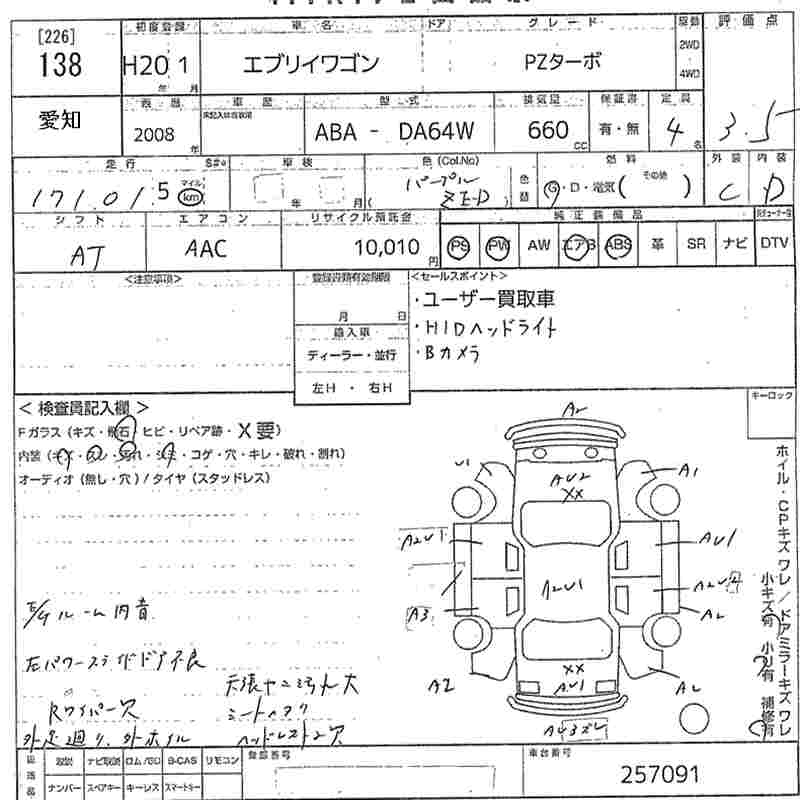 [226]
138
初度登録 車名 ドア グレード 駆動 評価点
H20 1 エブリイワゴン PZターボ 2WD
年 月 4WD
愛知
表暦 車歴 型式 排気量 保証書 定員
2008 年 ABA - DA64W 660 CC 有・無 4 名 3.5
走行 車検 色(Col.No) 燃料 外装 内装
171.015 マイル km 年 月 パープル ZE-D 色替 G・D・電気( その他 ) C D
シフト エアコン リサイクル預託金 純正装備品
AT AAC 10,010 円 PS PW AW エアB ABS 革 SR ナビ DTV
<注意事項> 登録書類有効期限 <セールスポイント>
月 日
・ユーザー買取車
輸入車
・HIDヘッドライト
ディーラー・並行
・Bカメラ
左H ・ 右H
キーロック
< 検査員記入欄 >
Fガラス(キズ・飛石・ヒビ・リペア跡・X要)
内装(キズ・スレ・汚れ・シミ・コゲ・穴・キレ・破れ・割れ)
オーディオ(無し・穴)/タイヤ(スタッドレス)
A2
U1 A1
AU2
XX
A2U1 AU1
A2U1
A2U2
A3 A2
A2 A2
XX
AU1
AU3ズレ
ホイル・CPキズ ワレ / ドアミラーキズ ワレ
小キズ有 小凹有 補修有
E/Gルーム内音
左パワースライドドア不良
天張ヤニ汚れ大
Rワイパー欠
シートヘタリ
外足廻り、外ホイル
ヘッドレスト2欠
欠品 取説 ナビ取説 ロム/SD B-CAS リモコン 登録番号 車台番号
ナンバー スペアキー キーレス スマートキー
257091